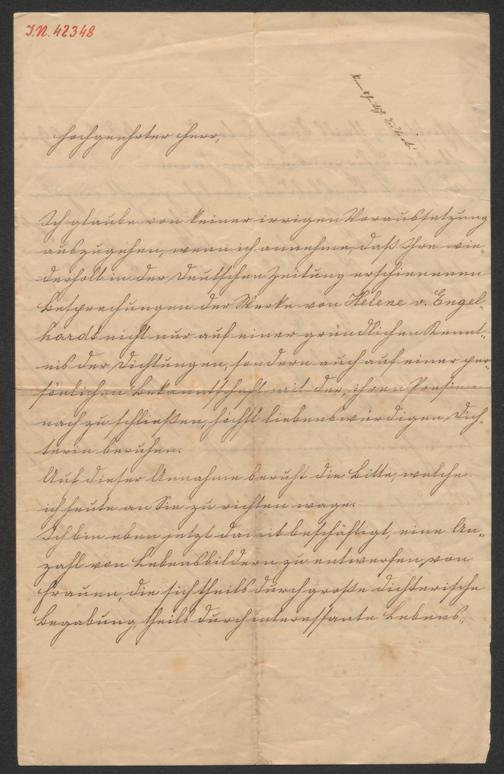 I.N. 42348
Hochgeehrter Herr,
Ich glaube von keiner irrigen Voraussetzung
auszugehen, wenn ich annehme, daß Ihre wie-
derholt in der Deutschen Zeitung erschienenen
Besprechungen der Werke von Helene v. Engel-
hardt nicht nur auf einer gründlichen Kennt-
nis der Dichtungen, sondern auch auf einer per-
sönlichen Bekanntschaft mit der, ihren Poesien
nach zu schließen, höchst liebenswürdigen Dich-
terin beruhen.
Auf dieser Annahme beruht die Bitte, welche
ich heute an Sie zu richten wage.
Ich bin eben jetzt damit beschäftigt, eine An-
zahl von Lebensbildern zu entwerfen, von
Frauen, die sich theils durch große dichterische
Begabung theils durch interessante Lebens-